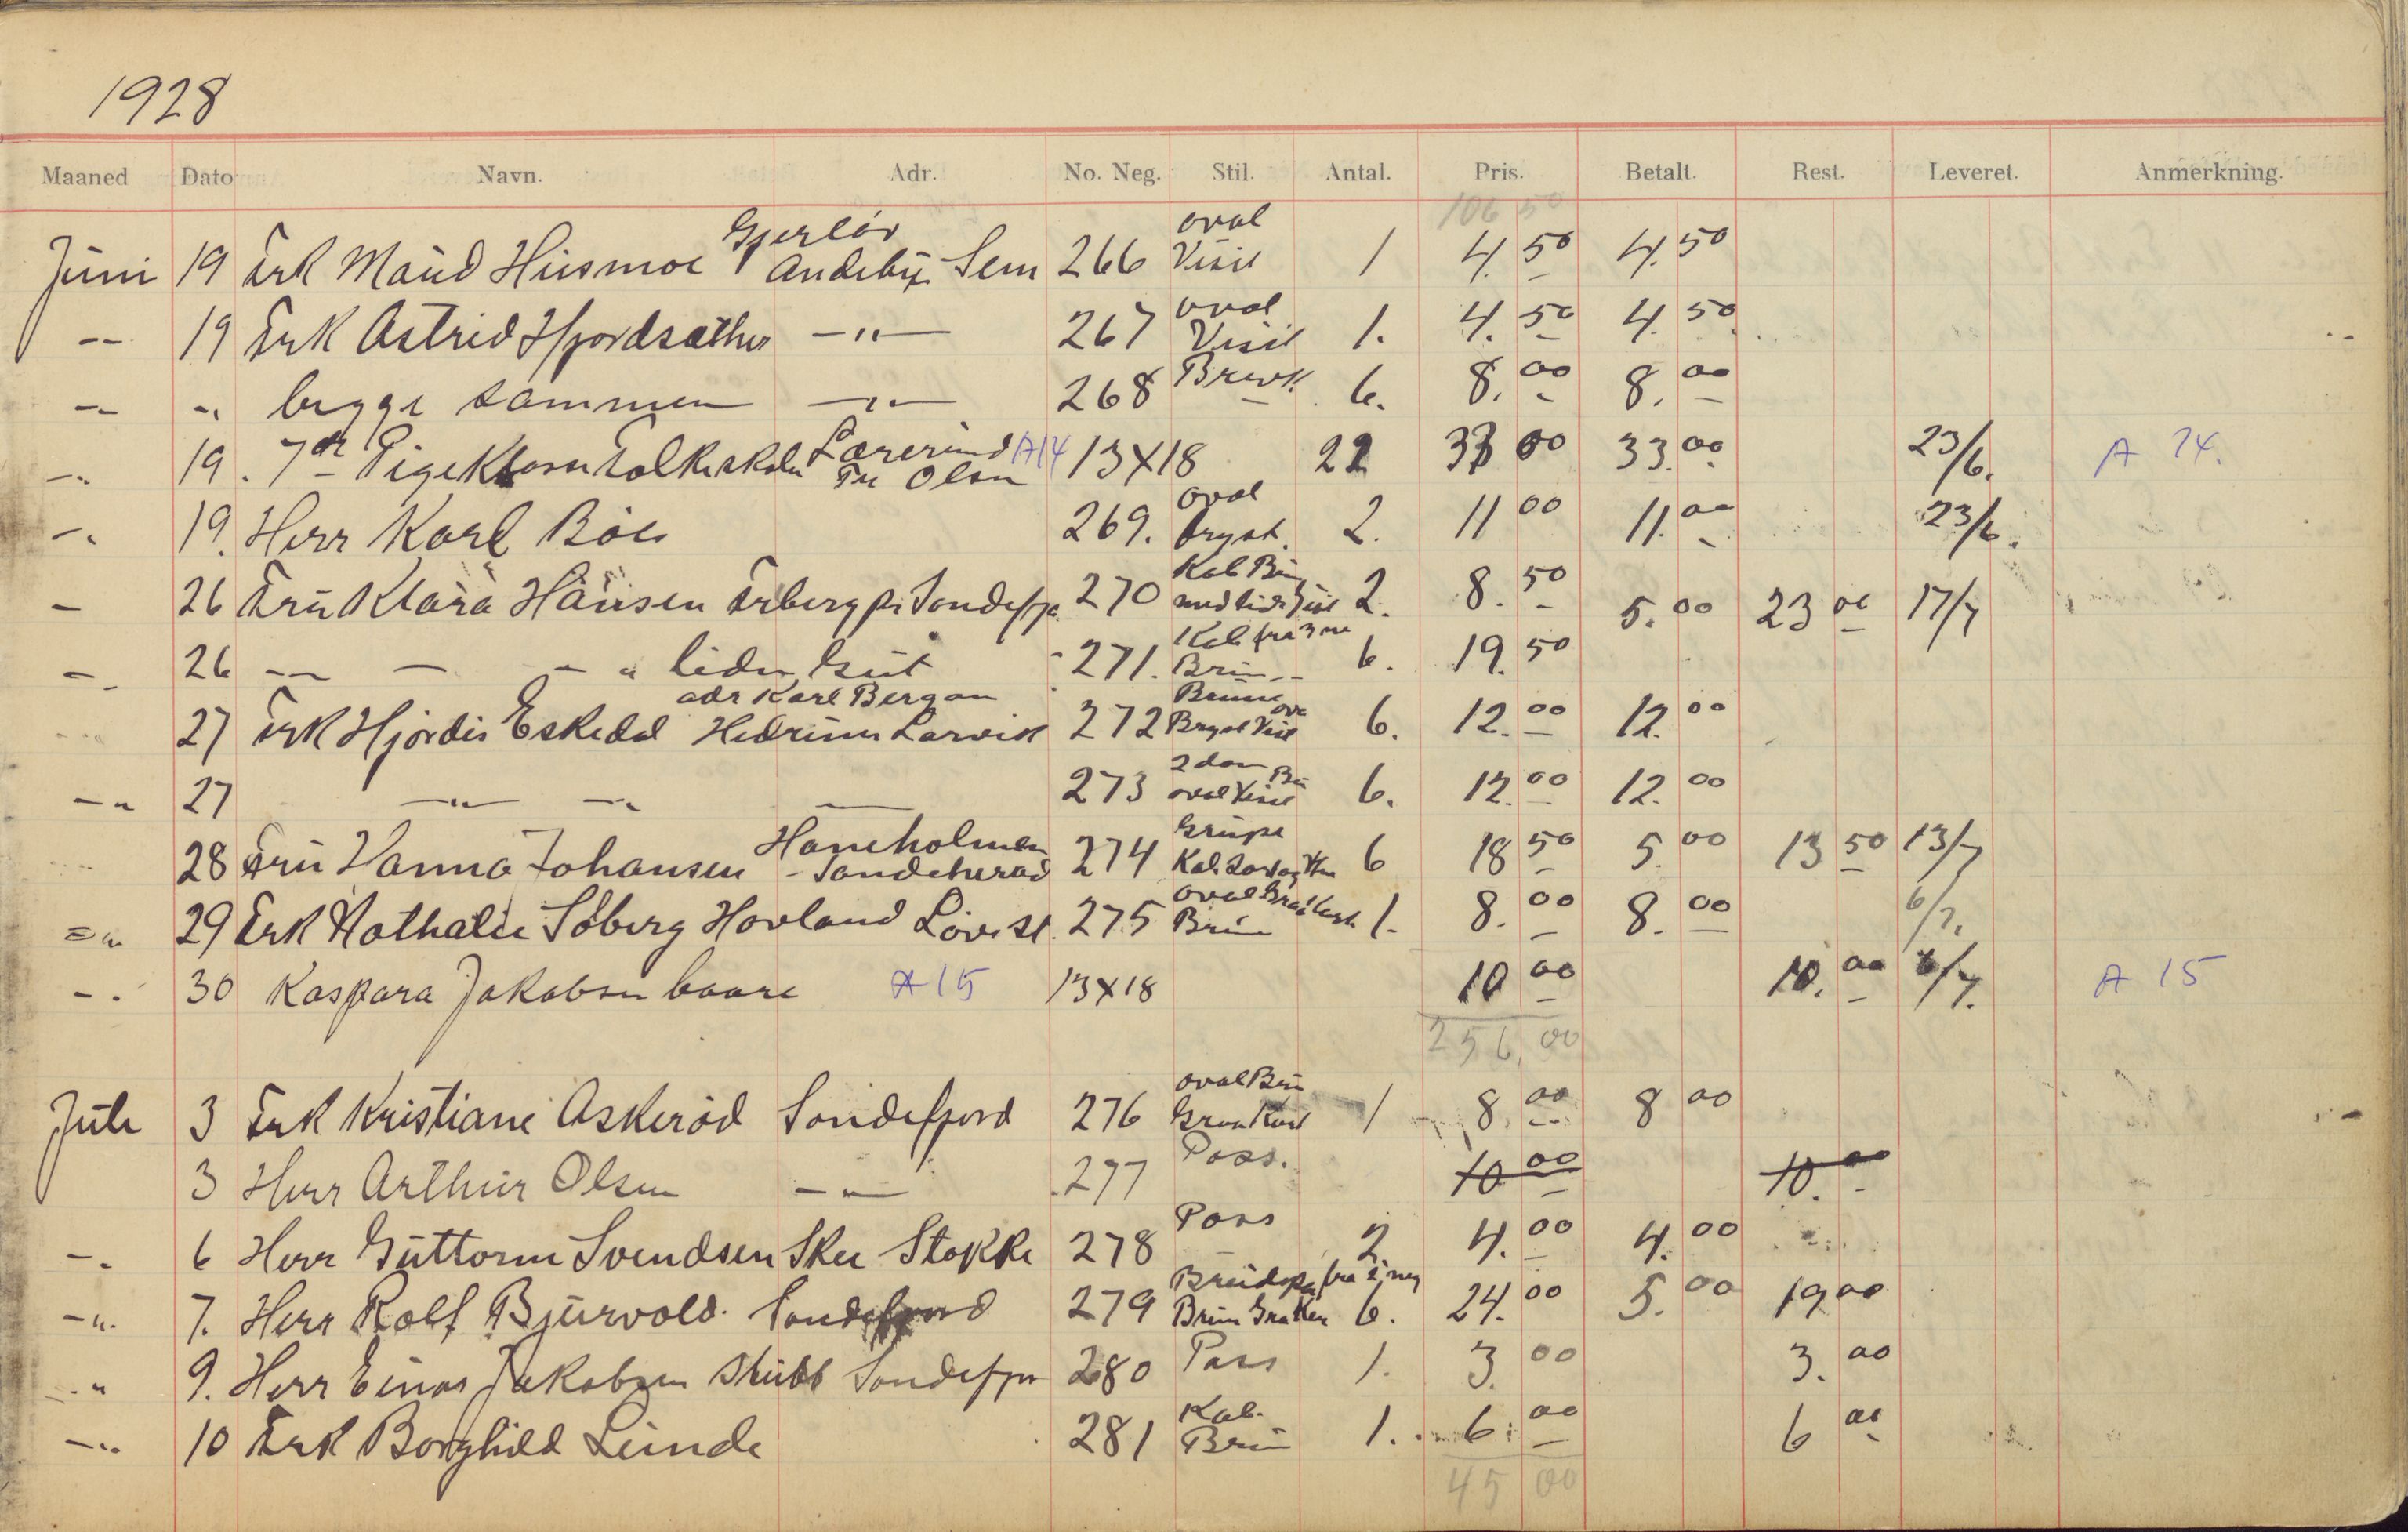 1928
Maaned Dato Navn. Adr. No. Neg. Stil. Antal. Pris. Betalt. Rest. Leveret. Anmerkning.
106 50
Juni 19 Frk Maud Husmoe Gjerløv Andebu Sem 266 oval Visit 1 4.50 4.50
-- 19 Frk Astrid Hjordsæther -"- 267 oval Visit 1. 4.50 4.50
-- " begge sammen -"- 268 Brevk. 6. 8.00 8.00
-" 19. 7de Pigeklasse Folkeskolen Lærerind Fru Olsen A14 13x18 22 33 00 33.00 23/6. A 14.
-" 19. Herr Karl Böe 269. oval bryst. 2. 11 00 11.00 23/6.
- 26 Fru Klara Hansen Freberg pr Sandefj. 270 Kab Brun 2. 8.50 5.00 23 00 17/7
-- 26 -- - - " liden Gut 271. Kab fra 3 ne Brun -- 6. 19.50
27 Frk Hjördis Eskedal adr Karl Bergan Hedrum Larvik 272 Brune ova Bryst Visit 6. 12.00 12.00
-" 27 -"- -" - 273 2 dam Br oval Visit 6. 12.00 12.00
28 Fru Vanna Johansen Haneholmen Sandeherad 274 Gruppe Kab. 6 18 50 5.00 13 50 13/7
=" 29 Frk Nathalie Söberg Hovland Lövest. 275 oval Graakart Brun 1. 8.00 8.00 6/7.
-. 30 Kaspara Jakobsen baare A 15 13x18 10 00 10.00 6/7. A 15
256,00
Juli 3 Frk Kristiane Askeröd Sandefjord 276 oval Brun Graa Kart 1 8.00 8 00
3 Herr Arthur Olsen -"- 277 Pass. 10 00 10.00
-. 6 Herr Guttorm Svendsen Skee Stokke 278 Pass 2. 4.00 4.00
-". 7. Herr Rolf Bjurvold. Sandefjord 279 fra 2 neg Brun 6. 24.00 5.00 19 00
-" 9. Herr Einar Jakobsen Stubb Sandefjor 280 Pass 1. 3.00 3.00
-" 10 Frk Borghild Lunde 281 Kab. Brun 1. 6.00 6 00
45 00